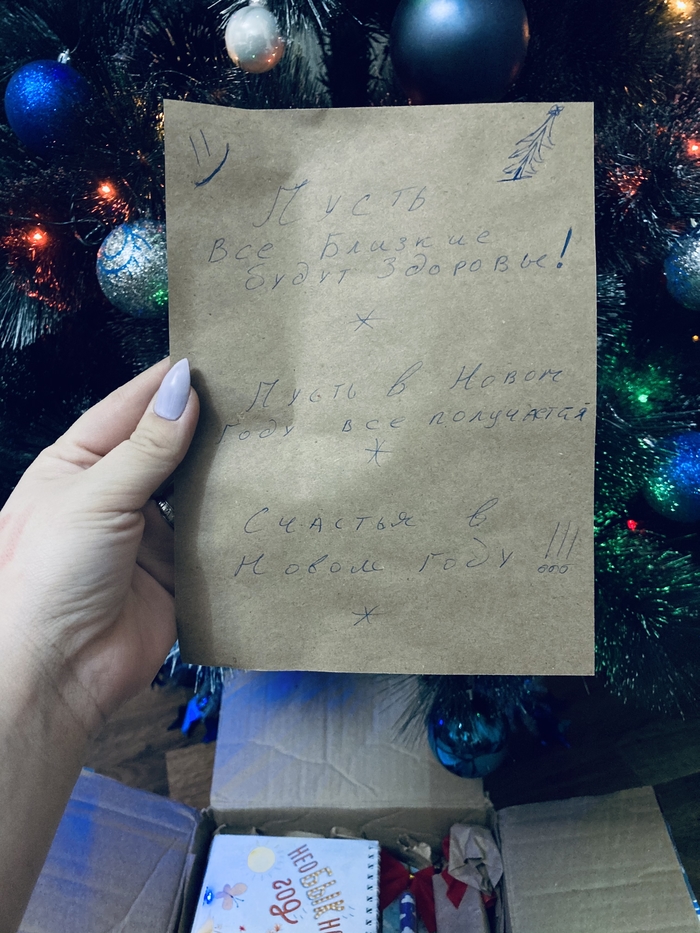 Пусть
Все Близкие
будут Здоровы!
Пусть в Новом
Году все получатся
Счастья в
Новом Году !!!
НЕОБЫЧН
ГОД